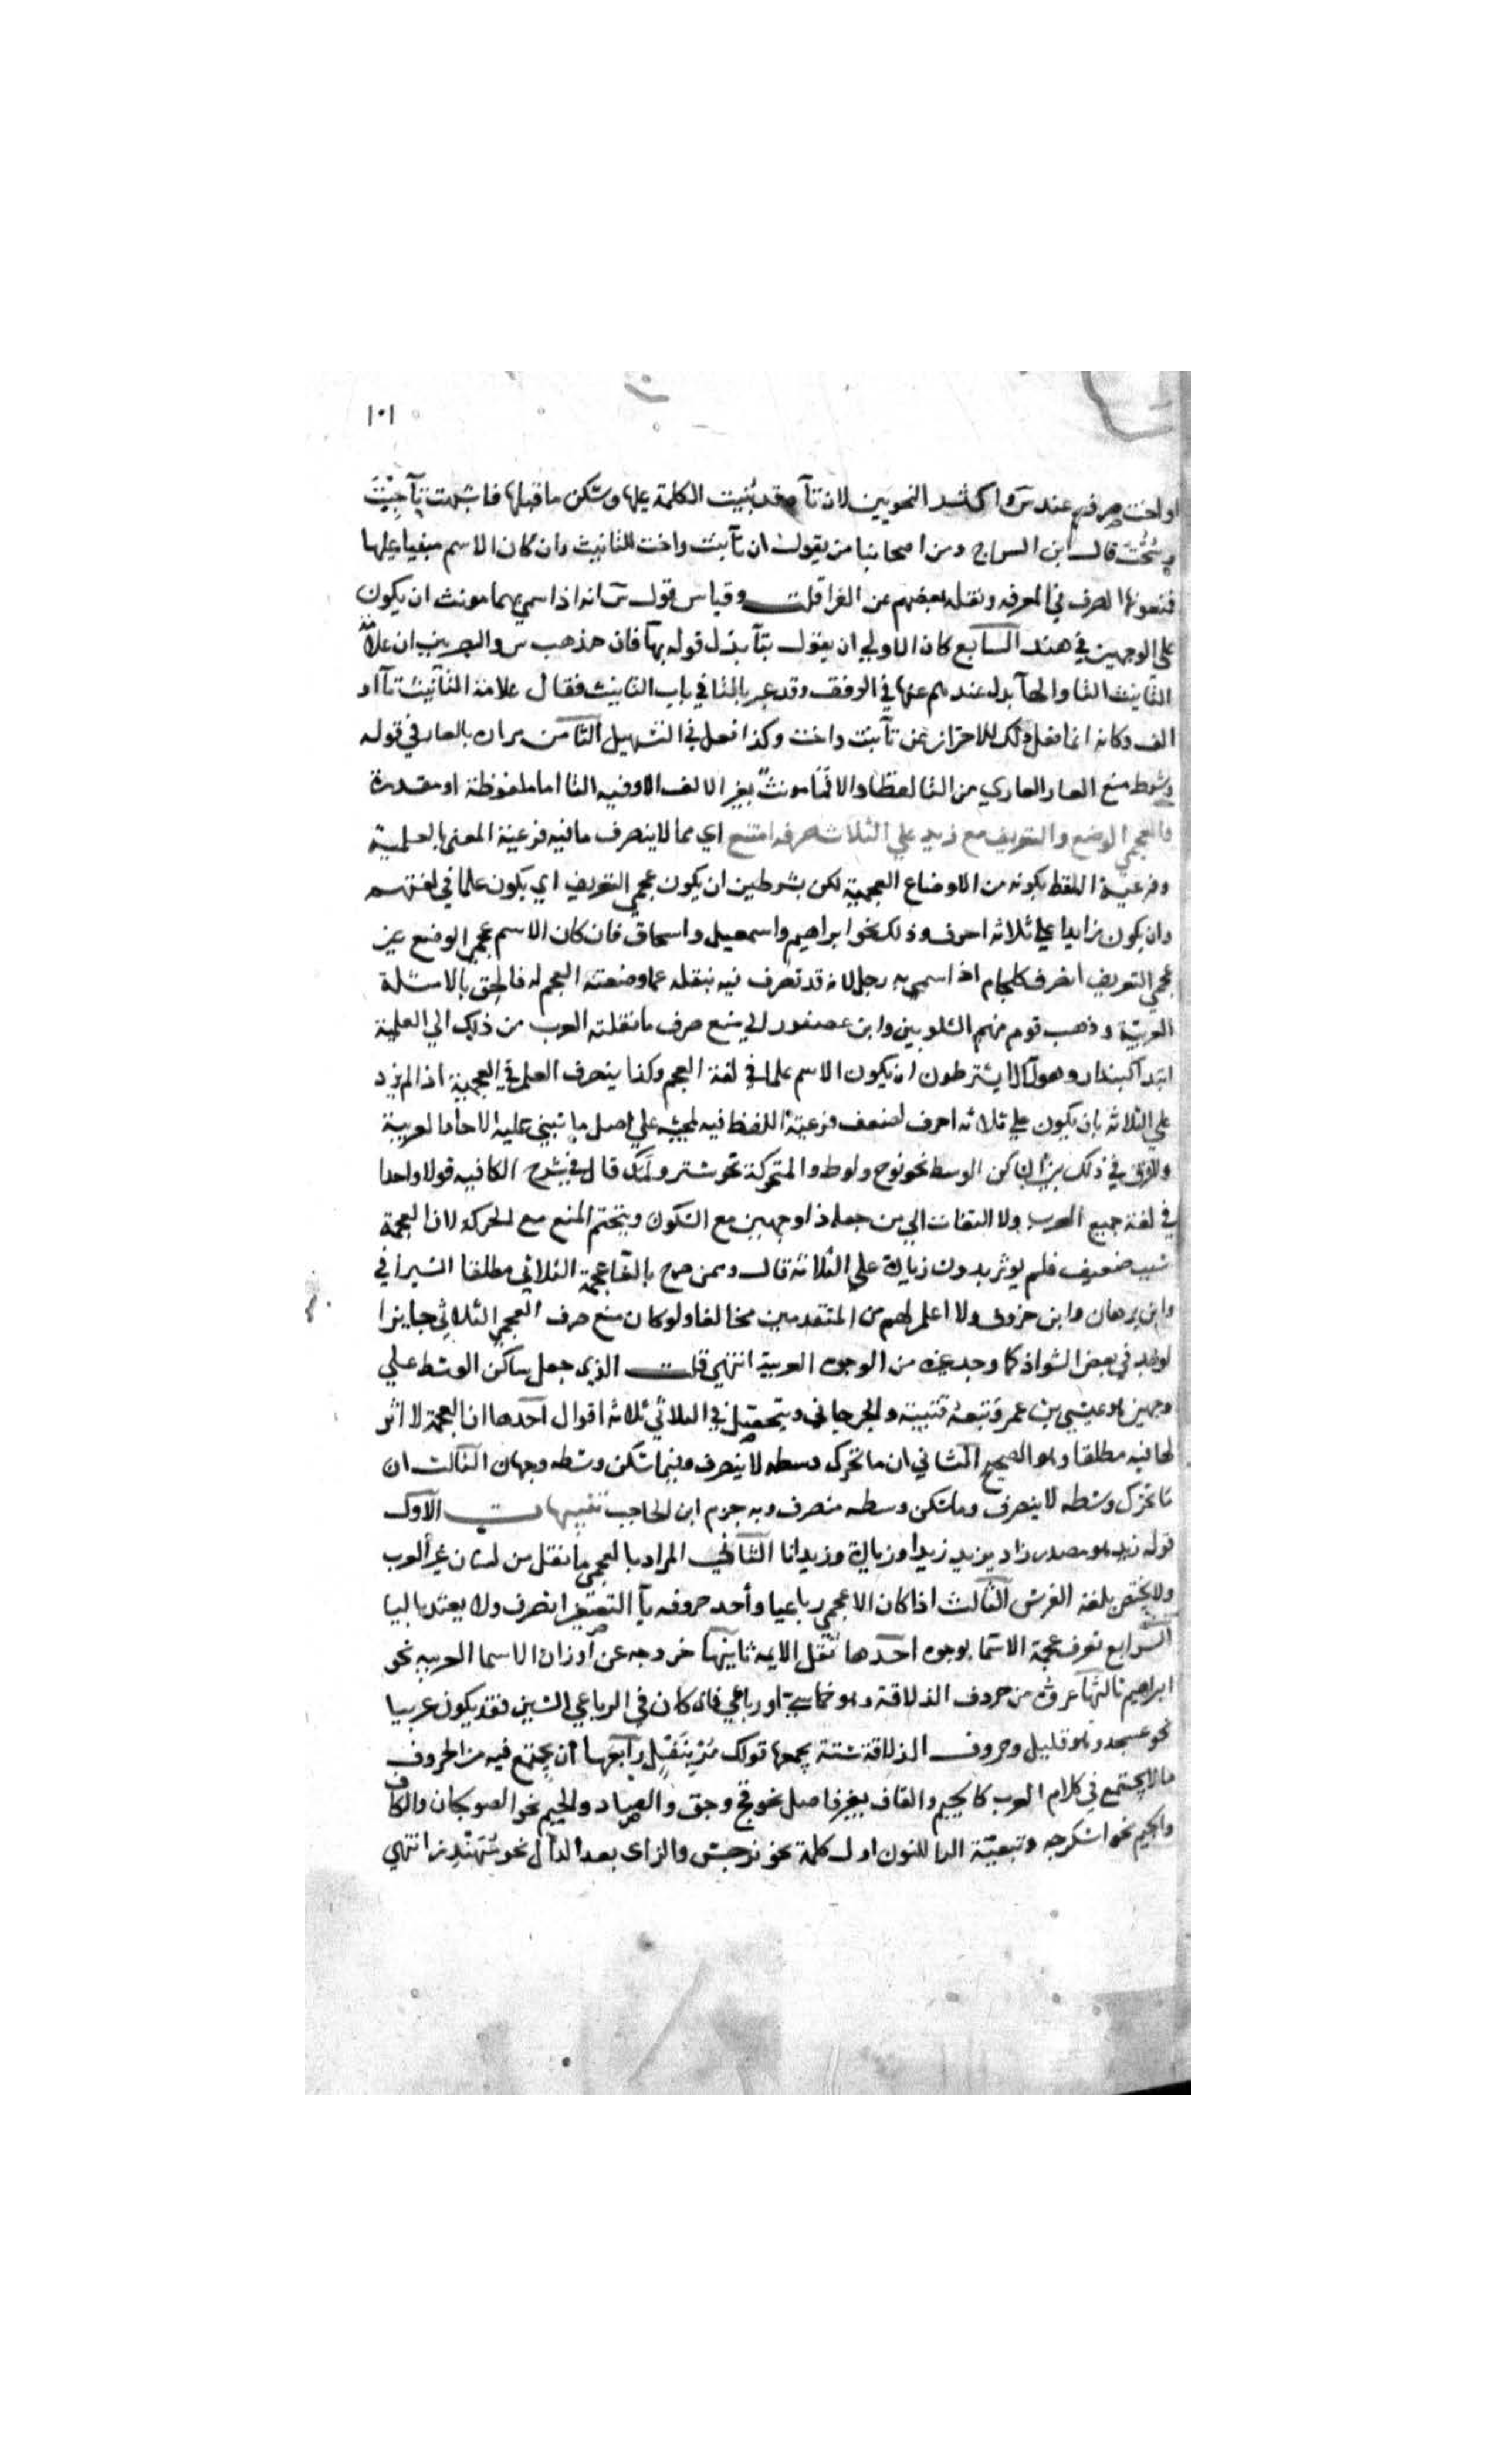 ١٠١
او اخت صرفته عند س واكثر النحويين لان تآه قد بنيت الكلمة عليها وسكن ماقبلها فاشبهت تآجبت
وسحت قال ابن السراج ومن اصحابنا من يقول ان تآبنت واخت للتانيث وان كان الاسم مبنيا عليها
فيمنعونهما الصرف في المعرفه ونقله بعضهم عن الفرا قلت وقياس قول س انه اذا سمي بهما مونث ان يكون
علي الوجهين في هند السابع كان الاولي ان يقول بتآ بدل قوله بهآ فان مذهب س والبصريين ان علامة
التانيث التا والهآ بدل عندهم عنها في الوقف وقد عبر بالتا في باب التانيث فقال علامة التانيث تآ او
الف وكانه انما فعل ذلك للاحتراز من تآ بنت واخت وكذا فعل في التسهيل الثامن مراده بالعار في قوله
وشرط منع العار العاري من التا لفظا والا فما مونث بغير الالف الا وفيه التا اما ملفوظة او مقدرة
والعجمي الوضع والتعريف مع زيد علي الثلاث صرفه امتنع اي مما لاينصرف مافيه فرعية المعني بالعلمية
وفرعية اللفظ بكونه من الاوضاع العجمية لكن بشرطين ان يكون عجمي التعريف اي يكون علما في لغتهم
وان يكون زايدا علي ثلاثه احرف وذلك نحو ابراهيم واسمعيل واسحاق فان كان الاسم عجمي الوضع غير
عجمي التعريف انصرف كلجام اذا سمي به رجل لانه قد تصرف فيه بنقله عما وضعته العجم له فالحق بالامثلة
العربية وذهب قوم منهم الشلوبين وابن عصفور الي منع صرف ما نقلته العرب من ذلك الي العلمية
ابتدا كبندار وهولآ لا يشترطون ان يكون الاسم علما في لغة العجم وكذا ينصرف العلم في العجمية اذا لم يزد
علي الثلاثه بان يكون علي ثلاثه احرف لضعف فرعية اللفظ فيه لمجيئه علي اصل ما تبني عليه الاحاد العربية
ولا فرق في ذلك بين الساكن الوسط نحو نوح ولوط والمتحركة نحو شتر ولمك قال في شرح الكافيه قولا واحدا
في لغة جميع العرب ولا التفات الي من جعله ذا وجهين مع السكون ويتحتم المنع مع الحركة لان العجمة
سبب ضعيف فلم يوثر بدون زيادة علي الثلاثة قال وممن صرح بالغآ عجمة الثلاثي مطلقا السيرافي
وابن برهان وابن خروف ولا اعلم لهم من المتقدمين مخالفا ولو كان منع صرف العجمي الثلاثي جايزا
لوجد في بعض الشواذ كما وجد غيره من الوجوه العربية انتهي قلت الذي جعل ساكن الوسط علي
وجهين هو عيسي بن عمر وتبعه قتيبة والجرجاني ويتحصل في الثلاثي ثلاثه اقوال احدها ان العجمة لا اثر
لها فيه مطلقا وهو الصحيح الثاني ان ما تحرك وسطه لا ينصرف وفيما سكن وسطه وجهان الثالث ان
ما تحرك وسطه لا ينصرف وما سكن وسطه منصرف وبه جزم ابن الحاجب تنبيهات الاول
قوله زيد هو مصدر زاد يزيد زيدا وزيادة وزيدانا الثاني المراد بالعجمي ما نقل من لسان غير العرب
ولا يختص بلغة الفرس الثالث اذا كان الاعجمي رباعيا واحد حروفه يآ التصغير انصرف ولا يعتد باليا
الرابع تعرف عجمة الاسما بوجوه احدها نقل الايمه ثانيها خروجه عن اوزان الاسما العربيه نحو
ابراهيم ثالثها عروه من حروف الذلاقة وهو خماسي او رباعي فان كان في الرباعي السين فقد يكون عربيا
نحو عسجد وهو قليل وحروف الذلاقة ستة يجمعها قولك مر بنفل رابعها ان يجتمع فيه من الحروف
ما لا يجتمع في كلام العرب كالجيم والقاف بغير فاصل نحو قج وجق والصاد والجيم نحو الصولجان والكاف
والجيم نحو اسكرجه وتبعية الرا للنون اول كلمة نحو نرجس والزاى بعد الدال نحو مهندز انتهي